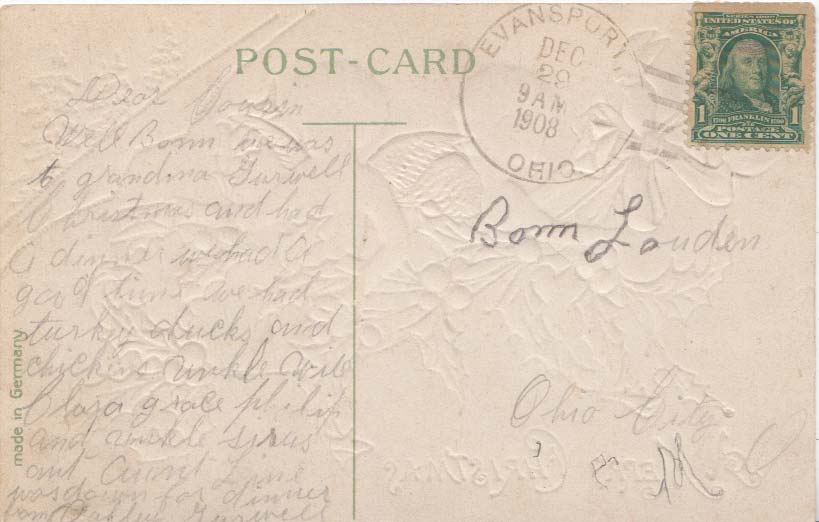 POST-CARD
EVANSPORT,
DEC
29
9 AM
1908
OHIO
SERIES 1902
UNITED STATES OF
AMERICA
1 1706 FRANKLIN 1790 1
POSTAGE
ONE CENT
Dear Cousin
Well Bonn we was
to grandma Furwell
Christmas and had
a dinner we had a
good time we had
turky ducks and
chickens unkle Will
Clara grace philip
and unkle sirus
ant Aunt
was down for dinner
from
made in Germany
Bonn Louden
Ohio City
MERRY CHRISTMAS